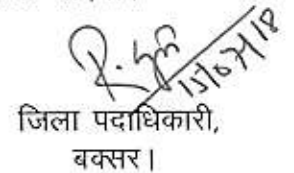 15/07/18
जिला पदाधिकारी,
बक्सर।